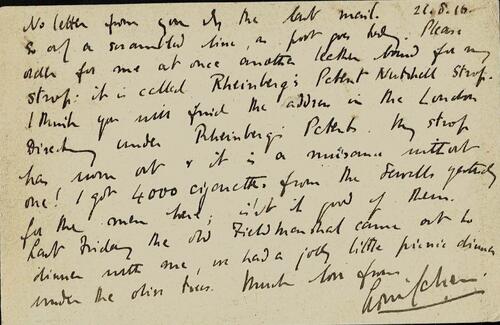 No letter from you by the last mail. 26.8.16
So only a scrambled line, as post goes today. Please
order for me at once another leather band for my
strop: it is called Rheinberg's Patent Nutshell Strop.
I think you will find the address in the London
Directory under Rheinberg's Patents. My strop
has worn out & it is a nuisance without
one! I got 4000 cigarettes from the Sewells yesterday
for the men here; isn't it good of them.
Last Friday the old Field Marshal came out to
dinner with me, we had a jolly little picnic dinner
under the olive trees. Much love from